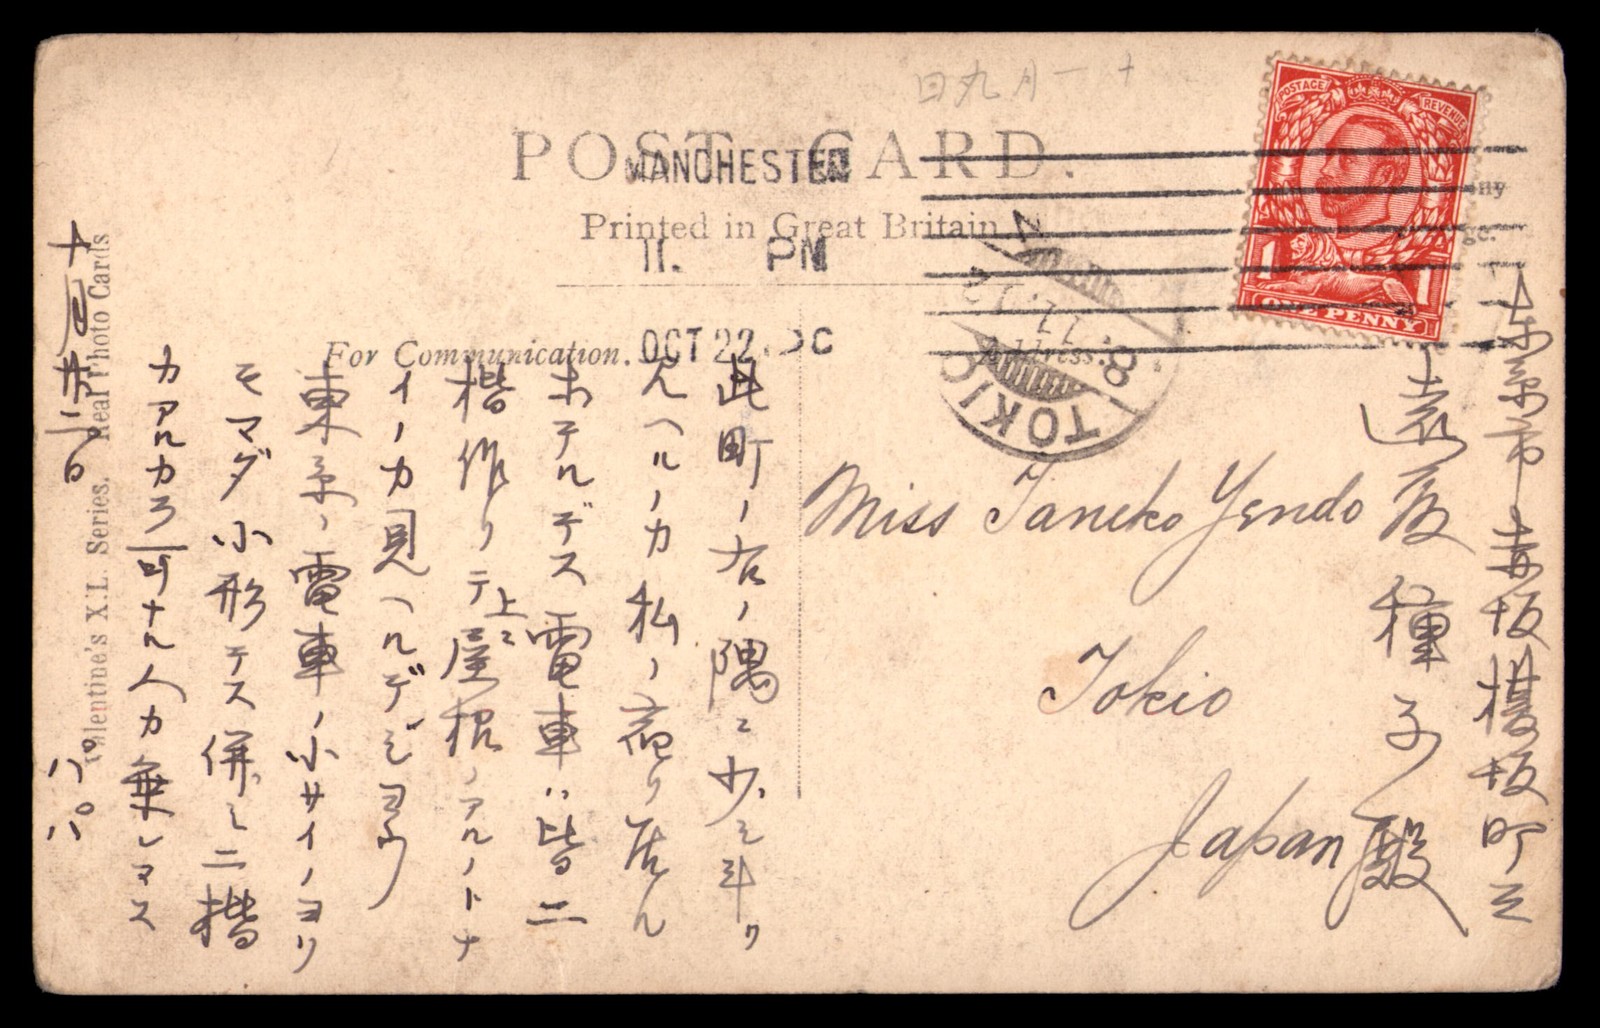 十一月九日
POST CARD.
MANCHESTER
Printed in Great Britain
11. PM
OCT 22
For Communication.
Address.
TOKIO
8.11.12
POSTAGE REVENUE
1 1
ONE PENNY
東京市赤坂榎坂町三
遠藤種子殿
Miss Taneko Yendo
Tokio
Japan
此町ノ右ノ隅ニ少シ斗リ
見ヘルノカ私ノ宿リ居ル
ホテルデス電車ハ皆二
楷作リテ上ニ屋根ノアルノトナ
イノカ見ヘルデシヨウ
東京ノ電車ノ小サイノヨリ
モマダ小形テス併シ二楷
カアルカラ可ナル人カ乗レマス
十月廿二日
パパ
Valentine's X.L. Series. Real Photo Cards